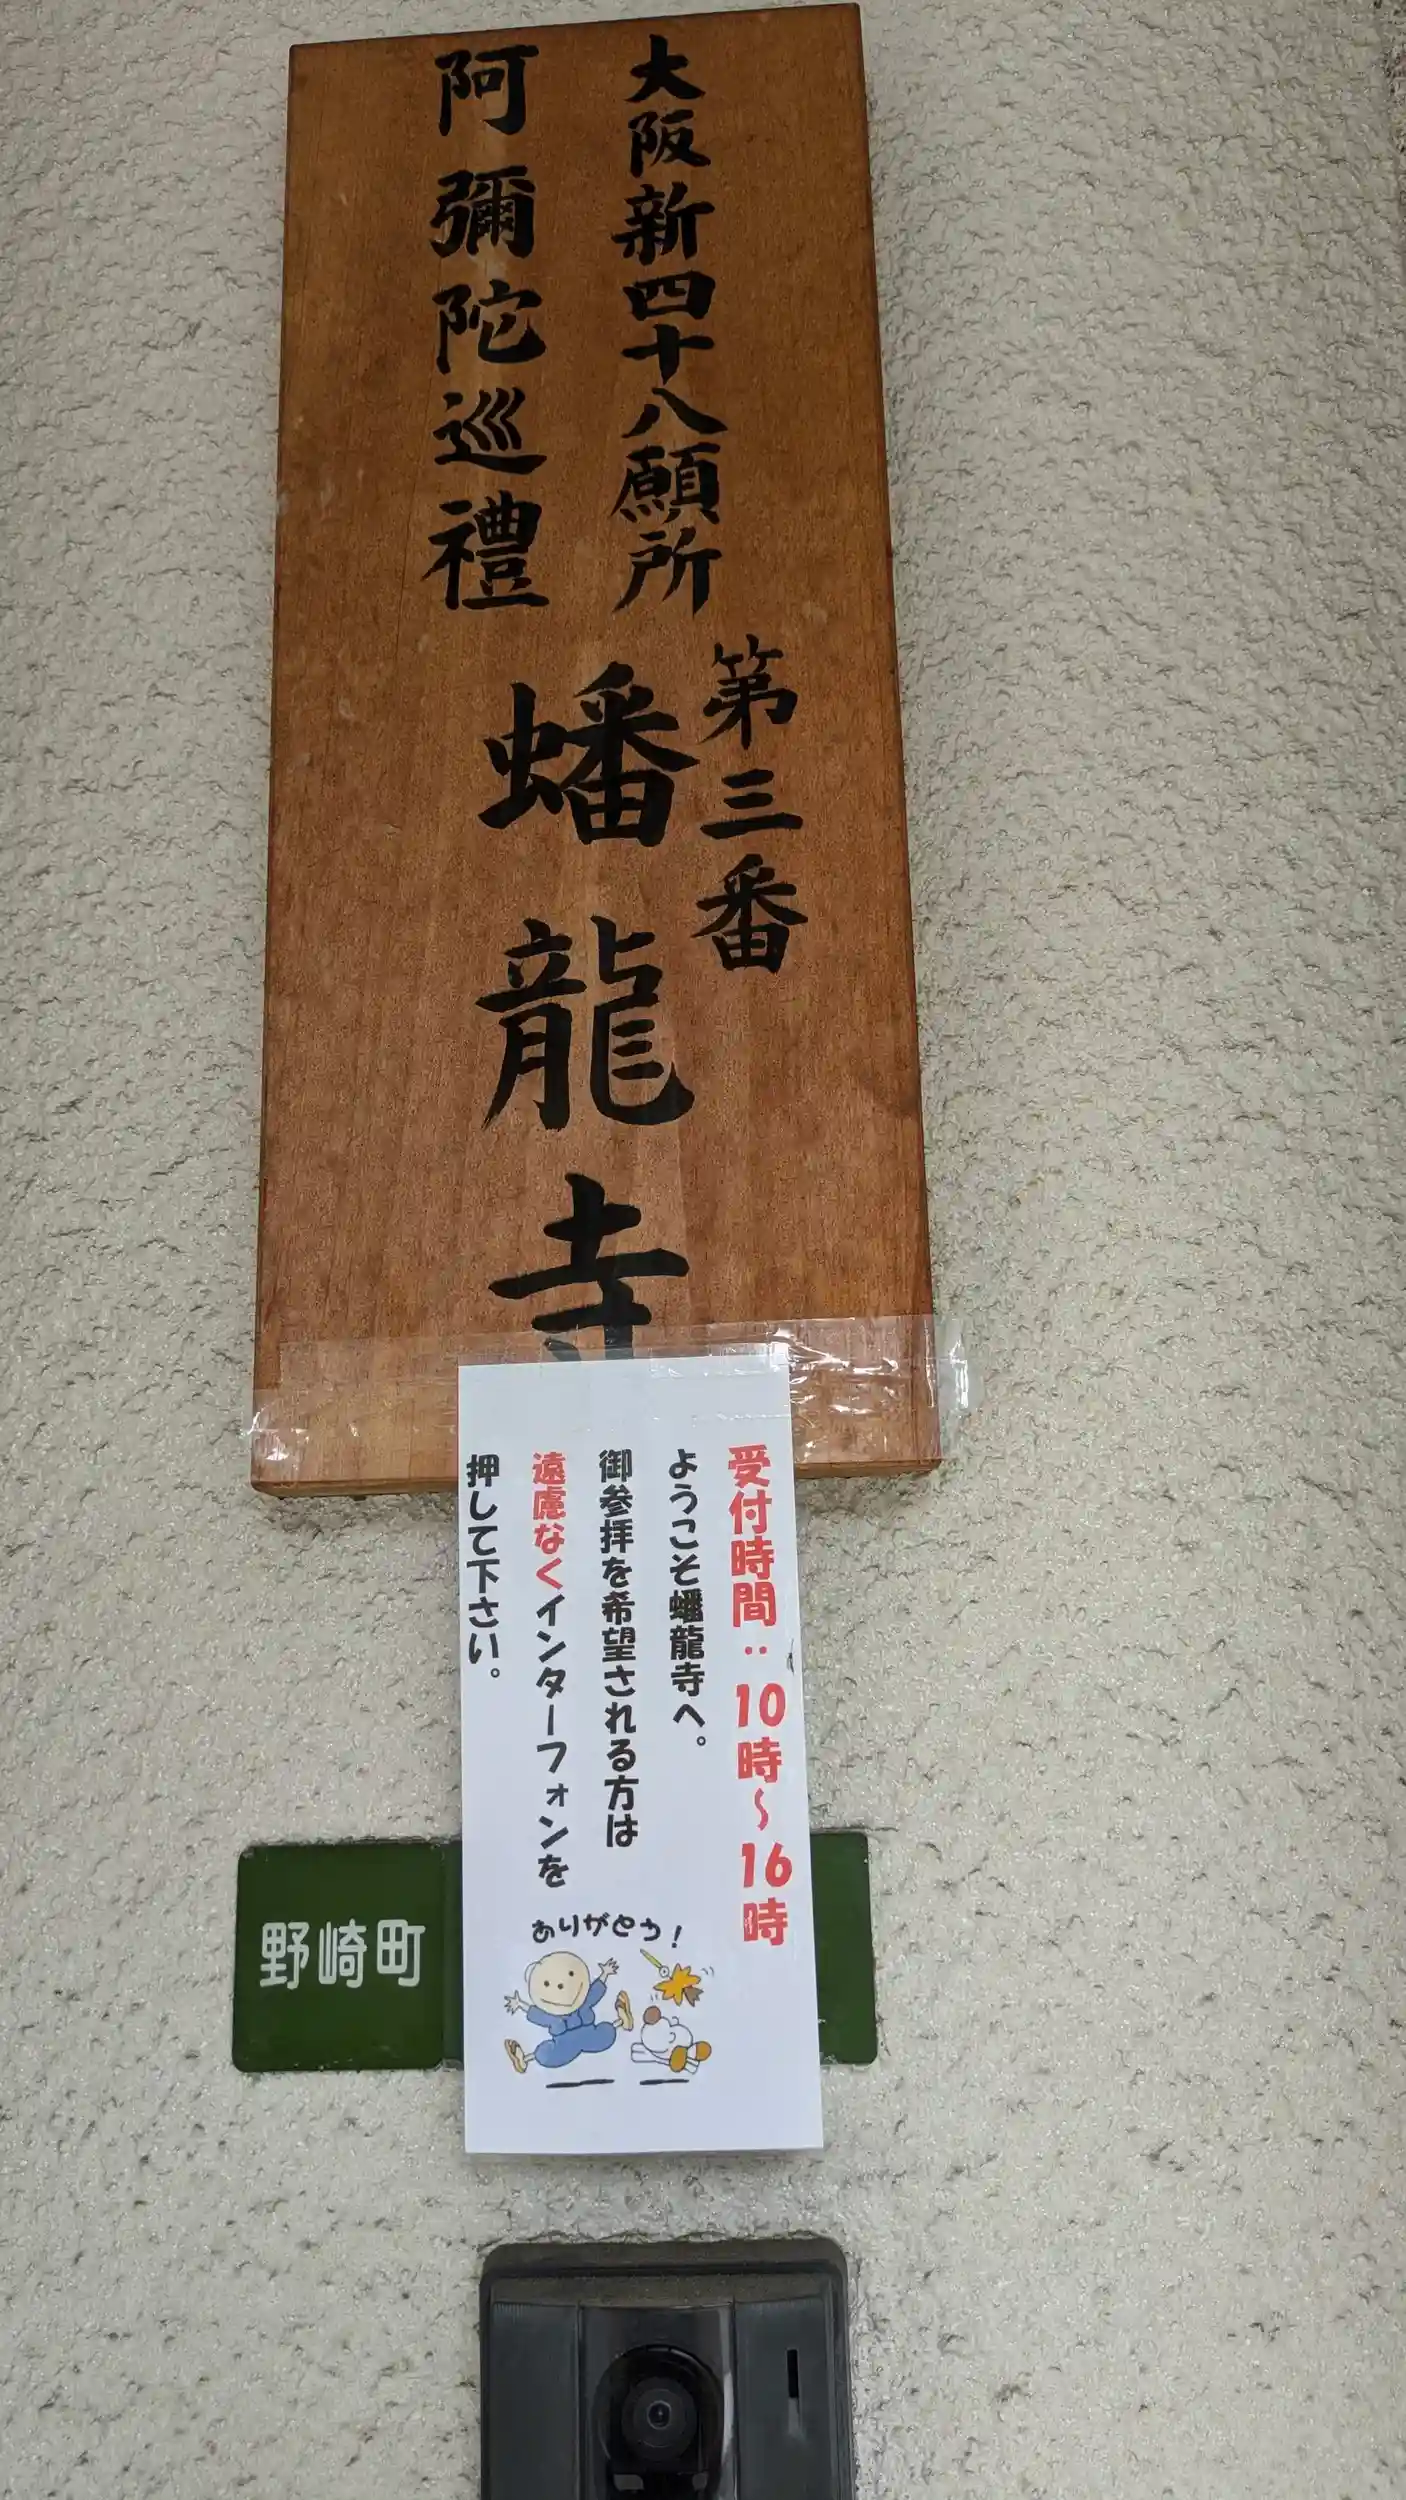 大阪新四十八願所
阿彌陀巡禮
第三番
蟠龍寺
受付時間:10時〜16時
ようこそ蟠龍寺へ。
御参拝を希望される方は
遠慮なくインターフォンを
押して下さい。
ありがとう!
野崎町